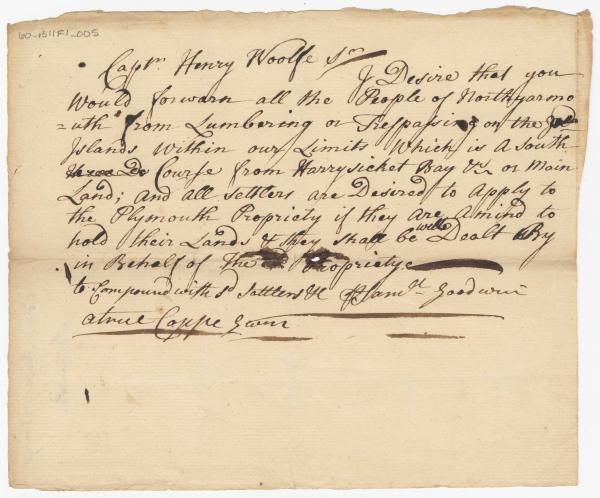 60-1311F1_005
Captn Henry Woolfe Sr
I Desire that you
Would forwarn all the People of Northyarmo
=uth from Lumbering or Trespasing on the
Islands Within our Limits Which is A South
Course from Harrysicket Bay &c or Main
Land; and all settlers are Desired to Apply to
the Plymouth Propriety if they are a mind to
hold their Lands & they shall be well Dealt By
in Behalf of The Propriety
to Compound with sd Sattlers &c Saml Goodwin
a true Coppe